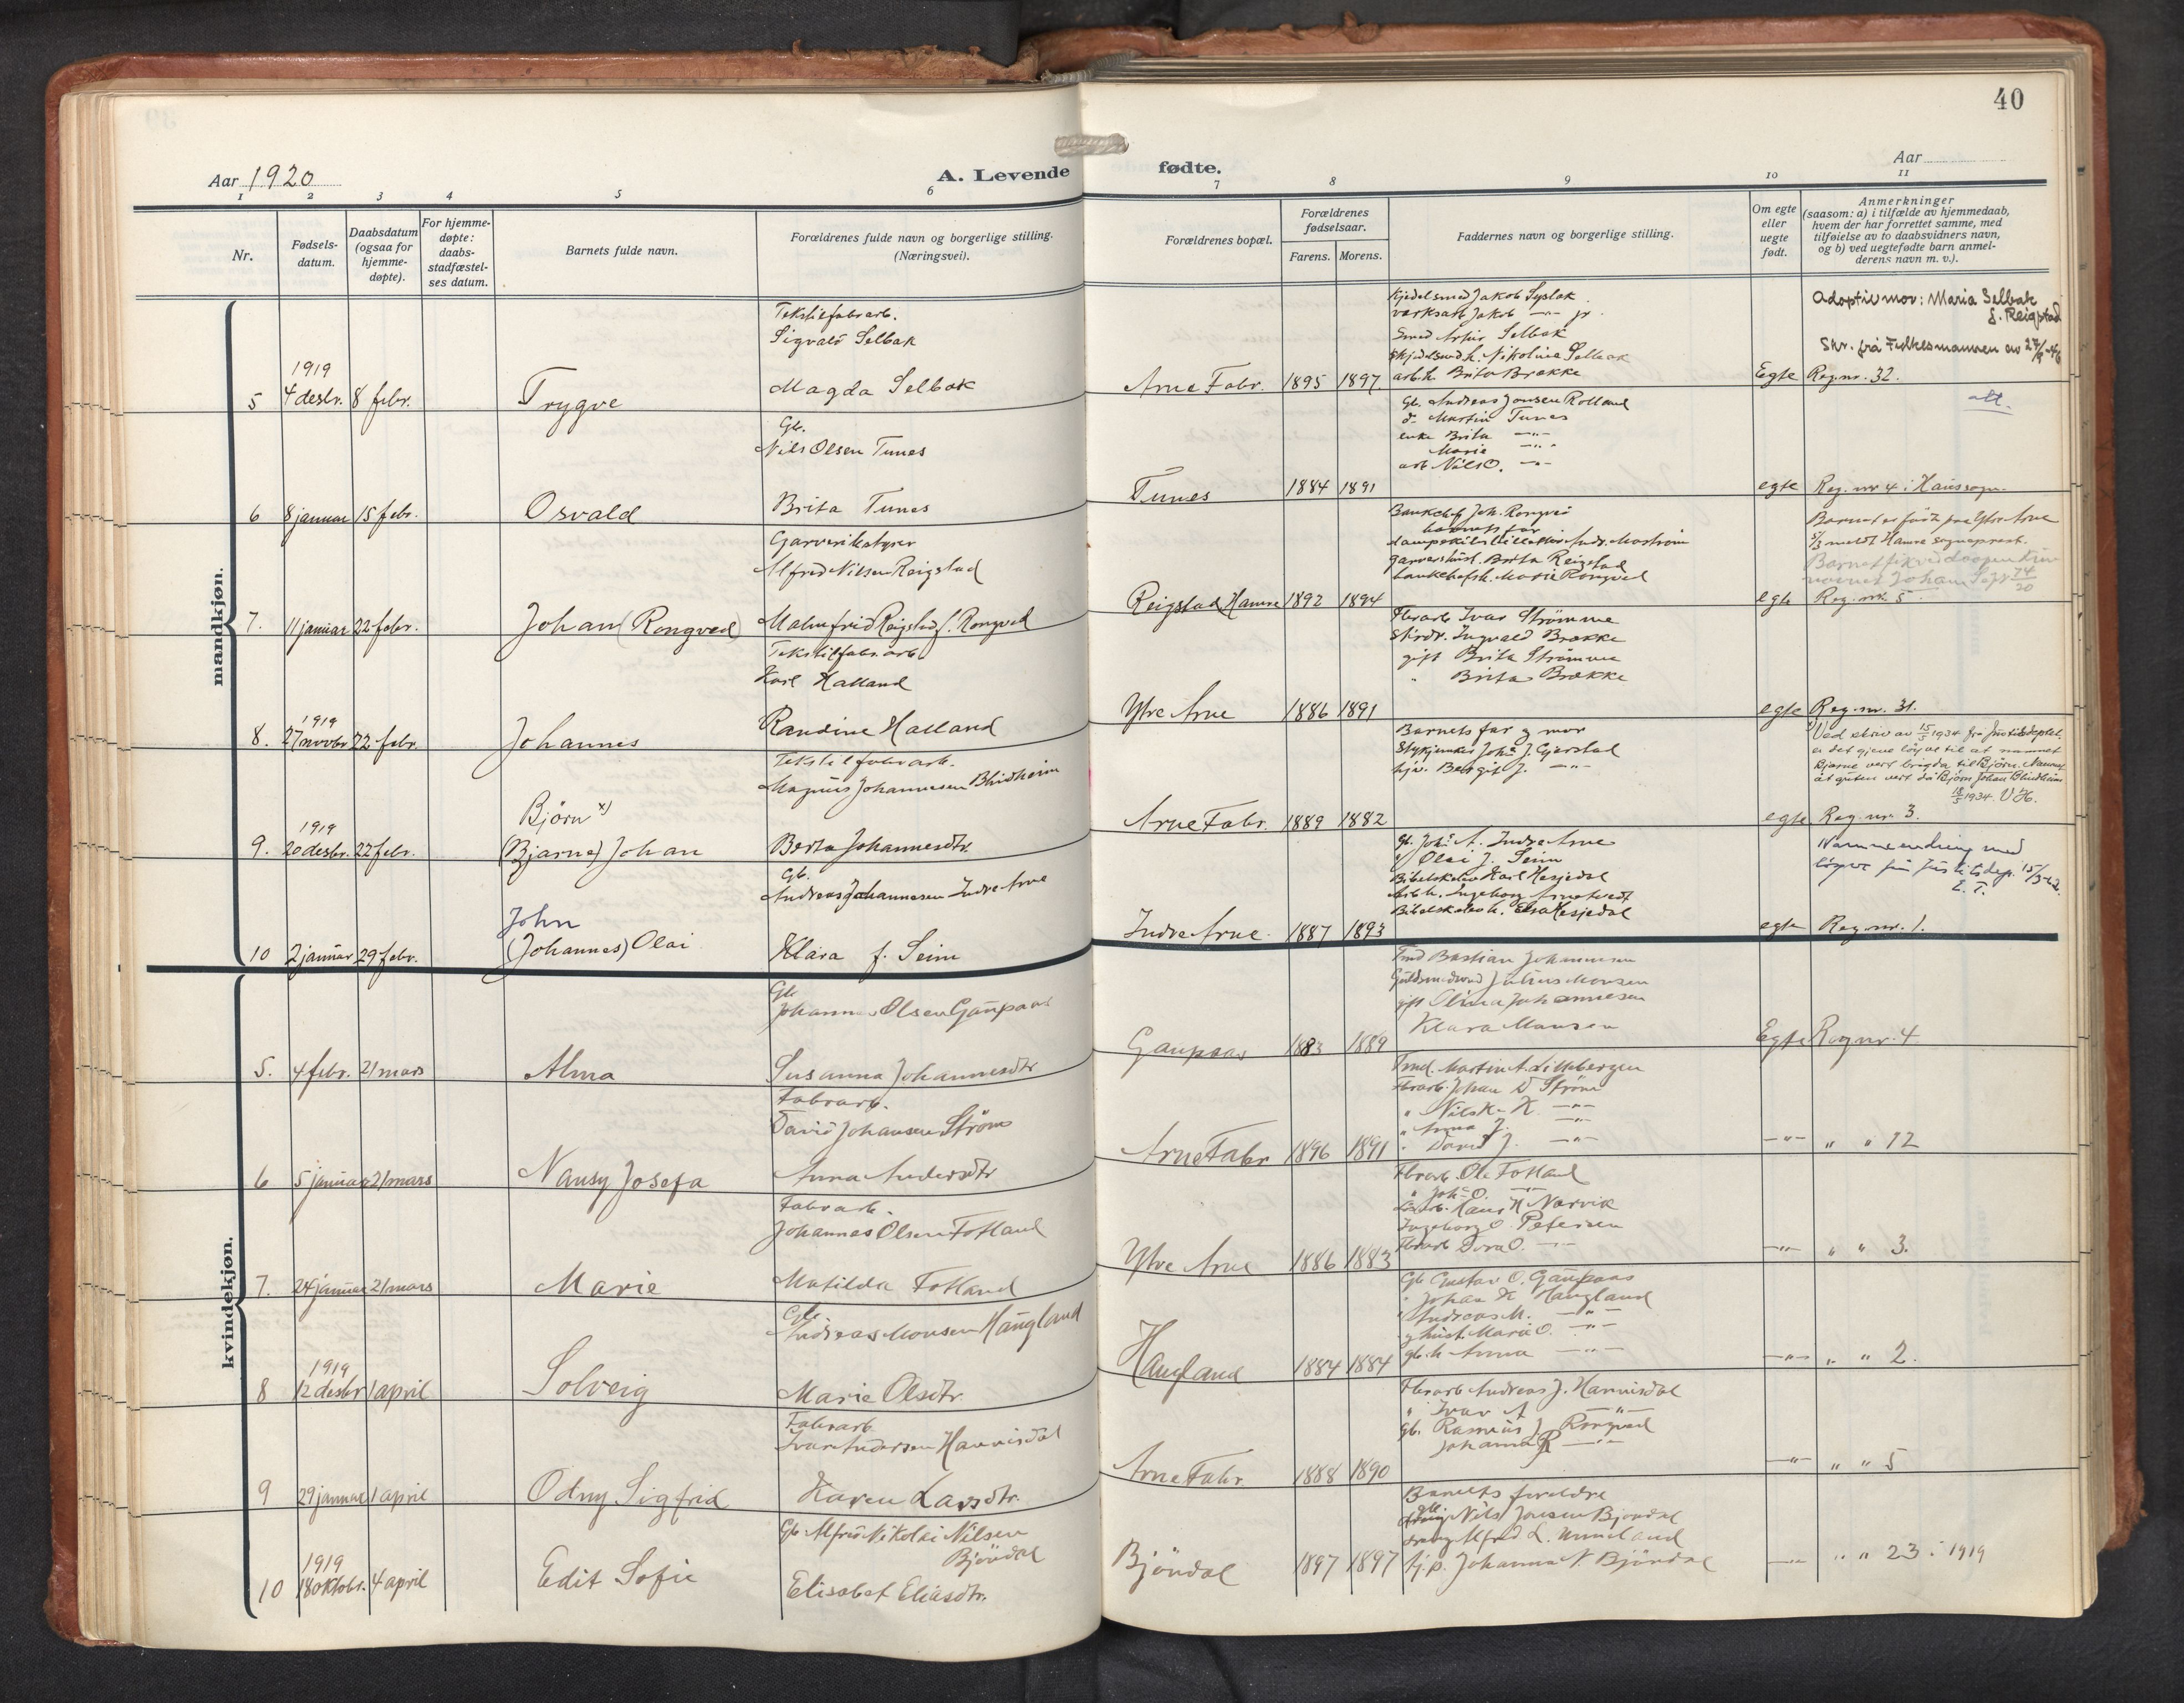 40
Aar 1920
A. Levende fødte.
Aar
1 2 3 4 5 6 7 8 9 10 11
Nr.
Fødsels-
datum.
Daabsdatum
(ogsaa for
hjemme-
døpte).
For hjemme-
døpte:
daabs-
stadfæstel-
ses datum.
Barnets fulde navn.
Forældrenes fulde navn og borgerlige stilling.
(Næringsvei).
Forældrenes bopæl.
Forældrenes
fødselsaar.
Farens. Morens.
Faddernes navn og borgerlige stilling.
Om egte
eller
uegte
født.
Anmerkninger
(saasom: a) i tilfælde av hjemmedaab,
hvem der har forrettet samme, med
tilføielse av to daabsvidners navn,
og b) ved uegtefødte barn anmel-
derens navn m. v.).
mandkjøn.
5
1919
4 desbr.
8 febr.
Trygve
Tekstilfabrarb.
Sigvald Selbak
Magda Selbak
Arne Fabr.
1895 1897
Kjedelsmed Jakob Syslak
verksarb Jakob —"— jr.
Smed Artur Selbak
Kjedelsmed h. Nikoline Selbak
arb. h. Brita Brække
Egte
Adoptivmor: Maria Selbak
f. Reigstad
Skr. frå Fylkesmannen av 27/9-46
Reg. nr. 32.
att.
6
8 januar
15 febr.
Osvald
Gb.
Nils Olsen Tunes
Brita Tunes
Tunes
1884 1891
Gb. Andreas Jonsen Rolland
d- Martin Tunes
enke Brita —"—
Marie —"—
arb Nils O. —"—
egte
Reg. nr 4 i Haus sogn.
7.
11 januar
22 febr.
Johan (Rongved)
Garveribestyrer
Alfred Nilsen Reigstad
Malmfrid Reigstad f. Rongved
Reigstad, Hamre
1892 1894
Bankchef Joh. Rongved
barnets far
Andr. Mostrøm
garverhust. Brita Reigstad
bankchefsh. Marie Rongved
egte
Barnet er født paa Ytre Arne
5/3 meldt Hamre sogneprest.
Barnet fik ved daapen kun
navnet Johan
Reg. nr. 5.
8.
1919
27 novbr
22 febr.
Johannes
Tekstilfabr. arb
Karl Halland
Randine Halland
Ytre Arne
1886 1891
Fbrarb Ivar Strömme
Skrdr. Ingvald Brække
gift Brita Strömme
" Brita Brække
egte
Reg. nr. 31.
9.
1919
20 desbr.
22 febr.
Bjørn x)
(Bjarne) Johan
Tekstilfabrarb.
Magnus Johannesen Blindheim
Berta Johannesdtr.
Arne Fabr.
1889 1882
Barnets far og mor
Stykjunker Johs J. Gjerstad
hjv. Bergit J. —"—
egte
x) Ved skriv av 15/5 1934 frå Justisdeptet.
er det gjeve løyve til at namnet
Bjarne vert brigda til Bjørn. Namnet
åt guten vert då Bjørn Johan Blindheim
18/5 1934. V.H.
Reg. nr. 3.
10
2 januar
29 febr.
John
(Johannes) Olai
Gb.
Andreas Johannesen Indre Arne
Klara f. Seim
Indre Arne
1887 1893
Gb. Johs A. Indre Arne
" Olai J. Seim
Bibelskolev Karl Hesjedal
Arb h. Ingeborg Arnetvedt
Bibelskolev h. Elsa Hesjedal
egte
Namneendring med
løyve frå Justisdep. 15/3-62.
E. T.
Reg. nr. 1.
kvindekjøn.
5.
4 febr.
21 mars
Alma
Gb.
Johannes Olsen Gaupaas
Susanna Johannesdtr
Gaupaas
1883 1889
Smd Bastian Johannesen
Guldsmedsvend Julius Monsen
gift Olina Johannesen
Klara Monsen
Egte
Reg nr. 4
6
5 januar
21 mars
Nansy Josefa
Fabrarb.
David Johansen Ström
Anna Andersdtr
Arne Fabr
1896 1891
Smd. Martin A. Lillebergen
Fbrarb. Johan D Ström
" Nils K —"—
" Anna J. —"—
" David J. —"—
—"—
" " 12
7.
24 januar
21 mars
Marie
Fabrarb.
Johannes Olsen Fotland
Matilda Fotland
Ytre Arne
1886 1883
Fbrarb Ole Fotland
" Joh. O. —"—
Hans H Narvik
Ingeborg O. Petersen
Fbrarb Dora O. —"—
—"—
" " 3.
8
1919
12 desbr
1 april
Solveig
Gb.
Andreas Monsen Haugland
Marie Olsdtr.
Haugland
1884 1884
Gb Gustav O. Gaupaas
" Johan K Haugland
" Andreas M. —"—
g hust. Maria O. —"—
gb. h Anna —"—
—"—
" " 2.
9
29 januar
1 april
Odny Sigfrid
Fabrarb
Ivar Andersen Hannisdal
Karen Larsdtr.
Arne Fabr
1888 1890
Fbrarb Andreas J. Hannisdal
" Ivar A —"—
gb. Rasmus J Rongved
Johanna R —"—
—"—
" " 5
10
1919
18 oktobr.
4 april
Edit Sofie
Gb Alfred Nikolai Nilsen
Bjöndal
Elisabet Eliasdtr.
Bjöndal
1897 1897
Barnets foreldre
gb. Nils Jonsen Bjöndal
Alfred L. Unneland
hj.p. Johanna N. Bjöndal
—"—
" " 23 i 1919